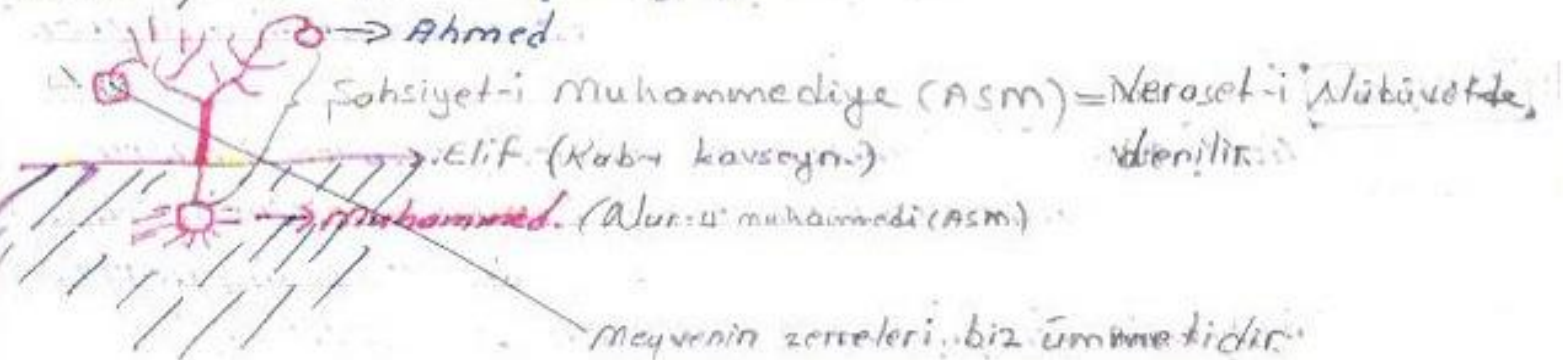 Ahmed
Şahsiyet-i Muhammediye (ASM) = Veraset-i Nübüvvet de
denilir.
Elif (Kab-ı kavseyn.)
Muhammed. (Nur-u muhammedi (ASM)
Meyvenin zerreleri biz ümmetidir.